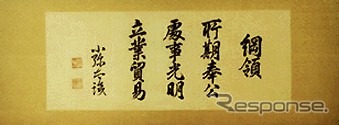 綱領
所期奉公
處事光明
立業貿易
小弥太識
Response.